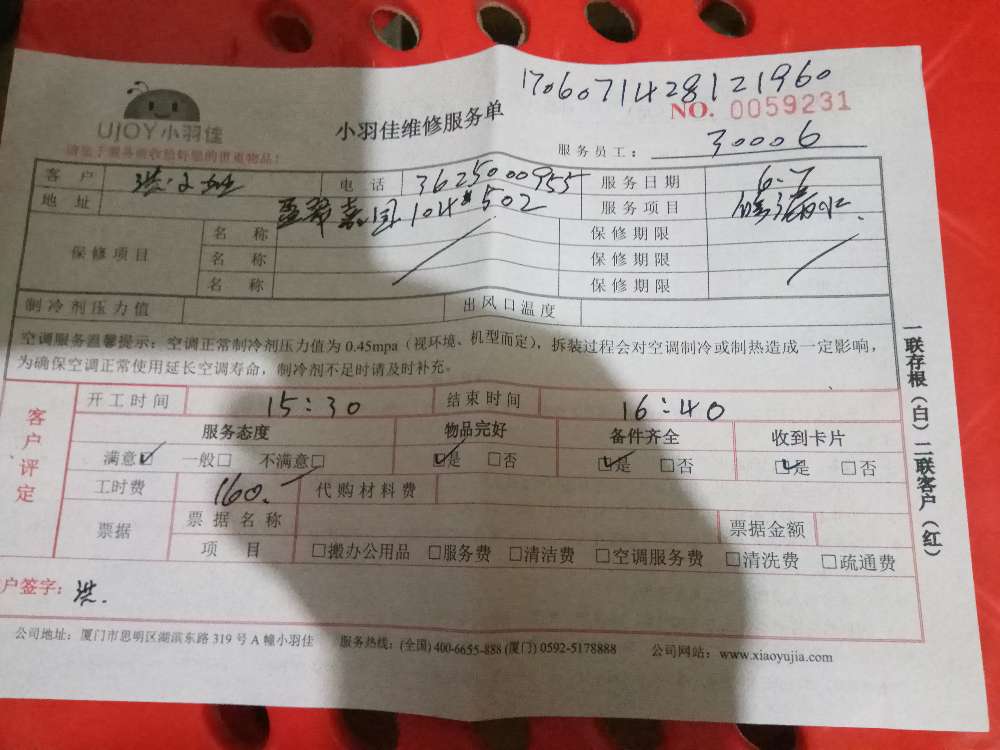 17060714281 21960
UJOY小羽佳
小羽佳维修服务单
NO. 0059231
服务员工： 30006
客 户
电 话 3625000955
服务日期 6.7
地 址 104#502
服务项目
保修项目
名 称
保修期限
名 称
保修期限
名 称
保修期限
制冷剂压力值
出风口温度
空调服务温馨提示：空调正常制冷剂压力值为 0.45mpa（视环境、机型而定），拆装过程会对空调制冷或制热造成一定影响，
为确保空调正常使用延长空调寿命，制冷剂不足时请及时补充。
客户评定
开工时间 15:30
结束时间 16:40
服务态度
物品完好
备件齐全
收到卡片
满意☑ 一般□ 不满意□
☑是 □否
☑是 □否
☑是 □否
工时费 160.—
代购材料费
票据
票据名称
票据金额
项 目
□搬办公用品 □服务费 □清洁费 □空调服务费 □清洗费 □疏通费
户签字： 洪.
公司地址：厦门市思明区湖滨东路 319 号 A 幢小羽佳
服务热线：(全国) 400-6655-888 (厦门) 0592-5178888
公司网站：www.xiaoyujia.com
一联存根（白）二联客户（红）